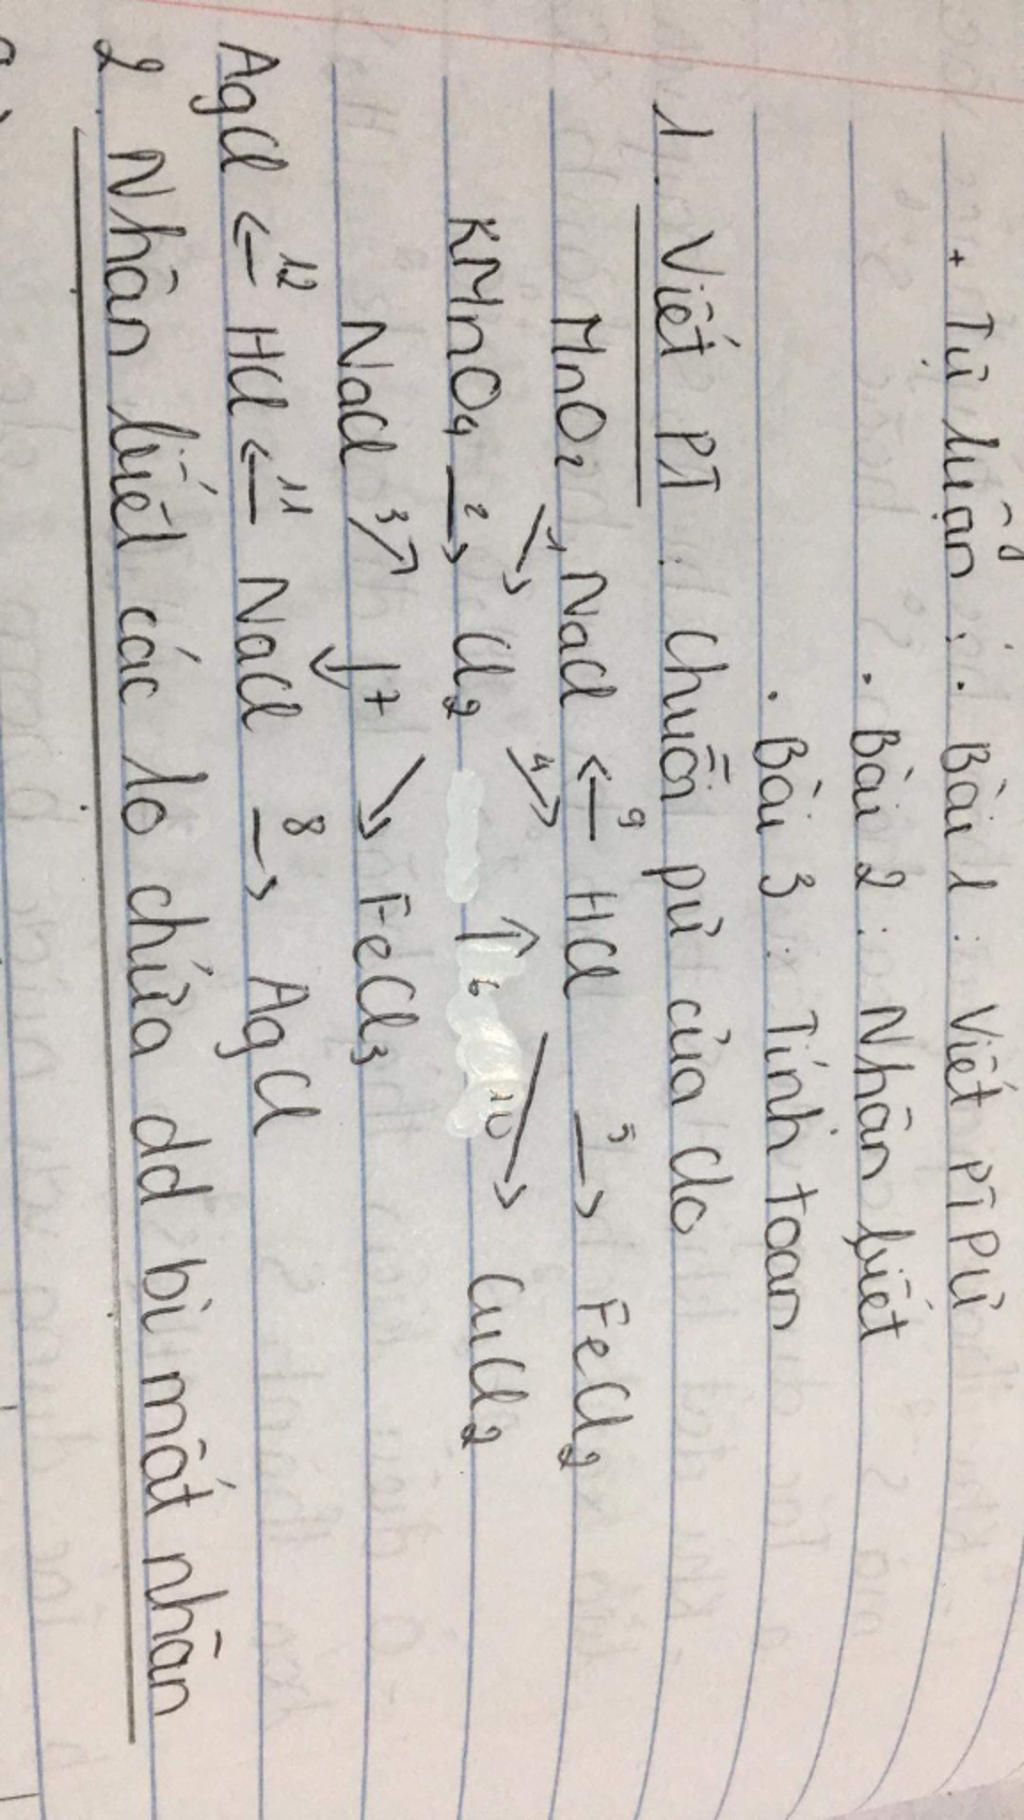 + Tự luận : . Bài 1 : Viết PTPƯ
. Bài 2 : Nhận biết
. Bài 3 : Tính toan
1. Viết PT : Chuỗi pư của clo
MnO2 →1 NaCl ←9 HCl →5 FeCl2
KMnO4 →2 Cl2 4 ↑6 10 → CuCl2
NaCl 3↗ ↓7 ↘ FeCl3
AgCl ←12 HCl ←11 NaCl →8 AgCl
2. Nhân biết các lo chứa dd bi mất nhãn